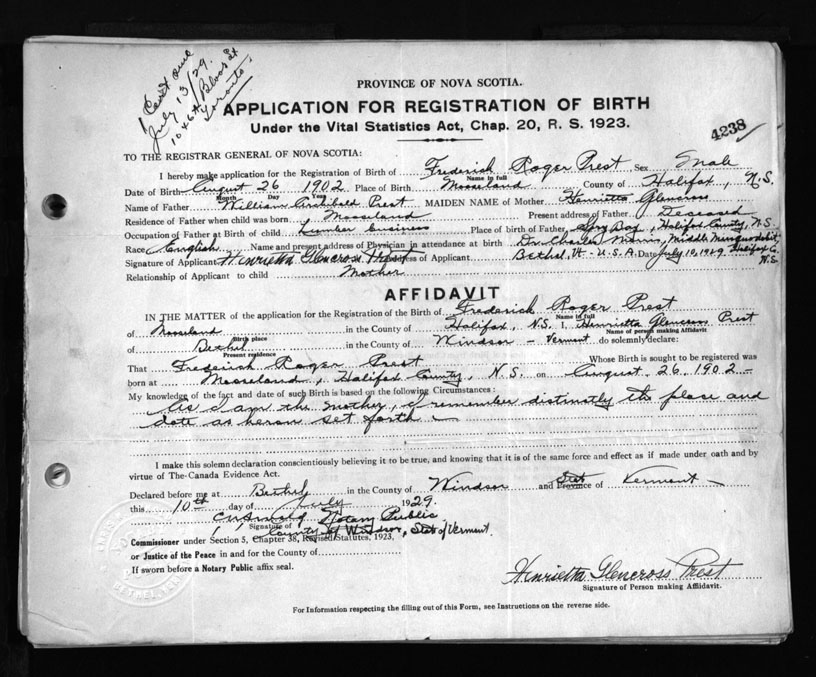 1 Cert
July 13/29.
Bloor St
Toronto
PROVINCE OF NOVA SCOTIA.
APPLICATION FOR REGISTRATION OF BIRTH
Under the Vital Statistics Act, Chap. 20, R. S. 1923.
4238
TO THE REGISTRAR GENERAL OF NOVA SCOTIA:
I hereby make application for the Registration of Birth of Frederick Roger Prest Sex Male
Name in full
Date of Birth August 26 1902 Place of Birth Mooseland County of Halifax, N.S.
Month Day Year
Name of Father William Archibald Prest MAIDEN NAME of Mother Henrietta Glencross
Residence of Father when child was born Mooseland Present address of Father Deceased
Occupation of Father at Birth of child Lumber business Place of birth of Father, Spry Bay, Halifax County, N.S.
Race English Name and present address of Physician in attendance at birth Dr. Charles Morris, Middle Musquodoboit, Halifax Co. N.S.
Signature of Applicant Henrietta Glencross Prest Address of Applicant Bethel, Vt - U.S.A. Date July 10, 1929
Relationship of Applicant to child Mother
AFFIDAVIT
IN THE MATTER of the application for the Registration of the Birth of Frederick Roger Prest
Name in full
of Mooseland in the County of Halifax, N.S. I, Henrietta Glencross Prest
Birth place Name of person making Affidavit
of Bethel in the County of Windsor - Vermont do solemnly declare:
Present residence
That Frederick Roger Prest Whose Birth is sought to be registered was
born at Mooseland, Halifax County, N.S. on August 26, 1902 -
My knowledge of the fact and date of such Birth is based on the following Circumstances:
As I am the mother, I remember distinctly the place and
date as heron set forth -
I make this solemn declaration conscientiously believing it to be true, and knowing that it is of the same force and effect as if made under oath and by
virtue of The Canada Evidence Act.
Declared before me at Bethel in the County of Windsor and State Province of Vermont -
this 10th day of July 1929.
Notary Public
Signature of
County of Windsor, State of Vermont
Commissioner under Section 5, Chapter 38, Revised Statutes, 1923,
or Justice of the Peace in and for the County of
If sworn before a Notary Public affix seal.
Henrietta Glencross Prest
Signature of Person making Affidavit.
For Information respecting the filling out of this Form, see Instructions on the reverse side.